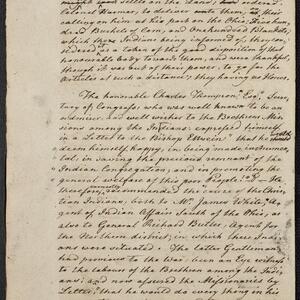 Colonel Harmer, to deliver unto them, on their
calling on him at his post on the Ohio, 5 hun-
dred Bushels of Corn, and One hundred Blankets,
which those Indians being informed of, they con-
sidered as a token of the good disposition of that
honourable Body towards them, and were thankful,
though it was out of their power, to go for the
Articles at such a distance; they having no Horses.
The honorable Charles Thompson, Esqr, Secre-
tary of Congress, who was well known to be an
admirer, and well wisher to the Brethrens Mis-
sions among the Indians: expressed himself
in a Letter to the Bishop Ettwein: that he should
deem himself happy, in being made instrumen-
tal, in saving the precious remnant of the
Indian Congregation, and in promoting the
general welfare of this poor People: He
therefore, earnestly recommended the cause of the Chris-
tian Indians, both to Mr. James White, A-
gent of Indian Affairs South of the Ohio, as
also to General Richard Butler, Agent for
the Northern district, in which these Indi-
ans were situated. The latter Gentleman,
had previous to the War: been an Eye witness
to the labours of the Brethren among the Indi-
ans; and now assured the Missionaries by
Letter, that he would do every thing in his